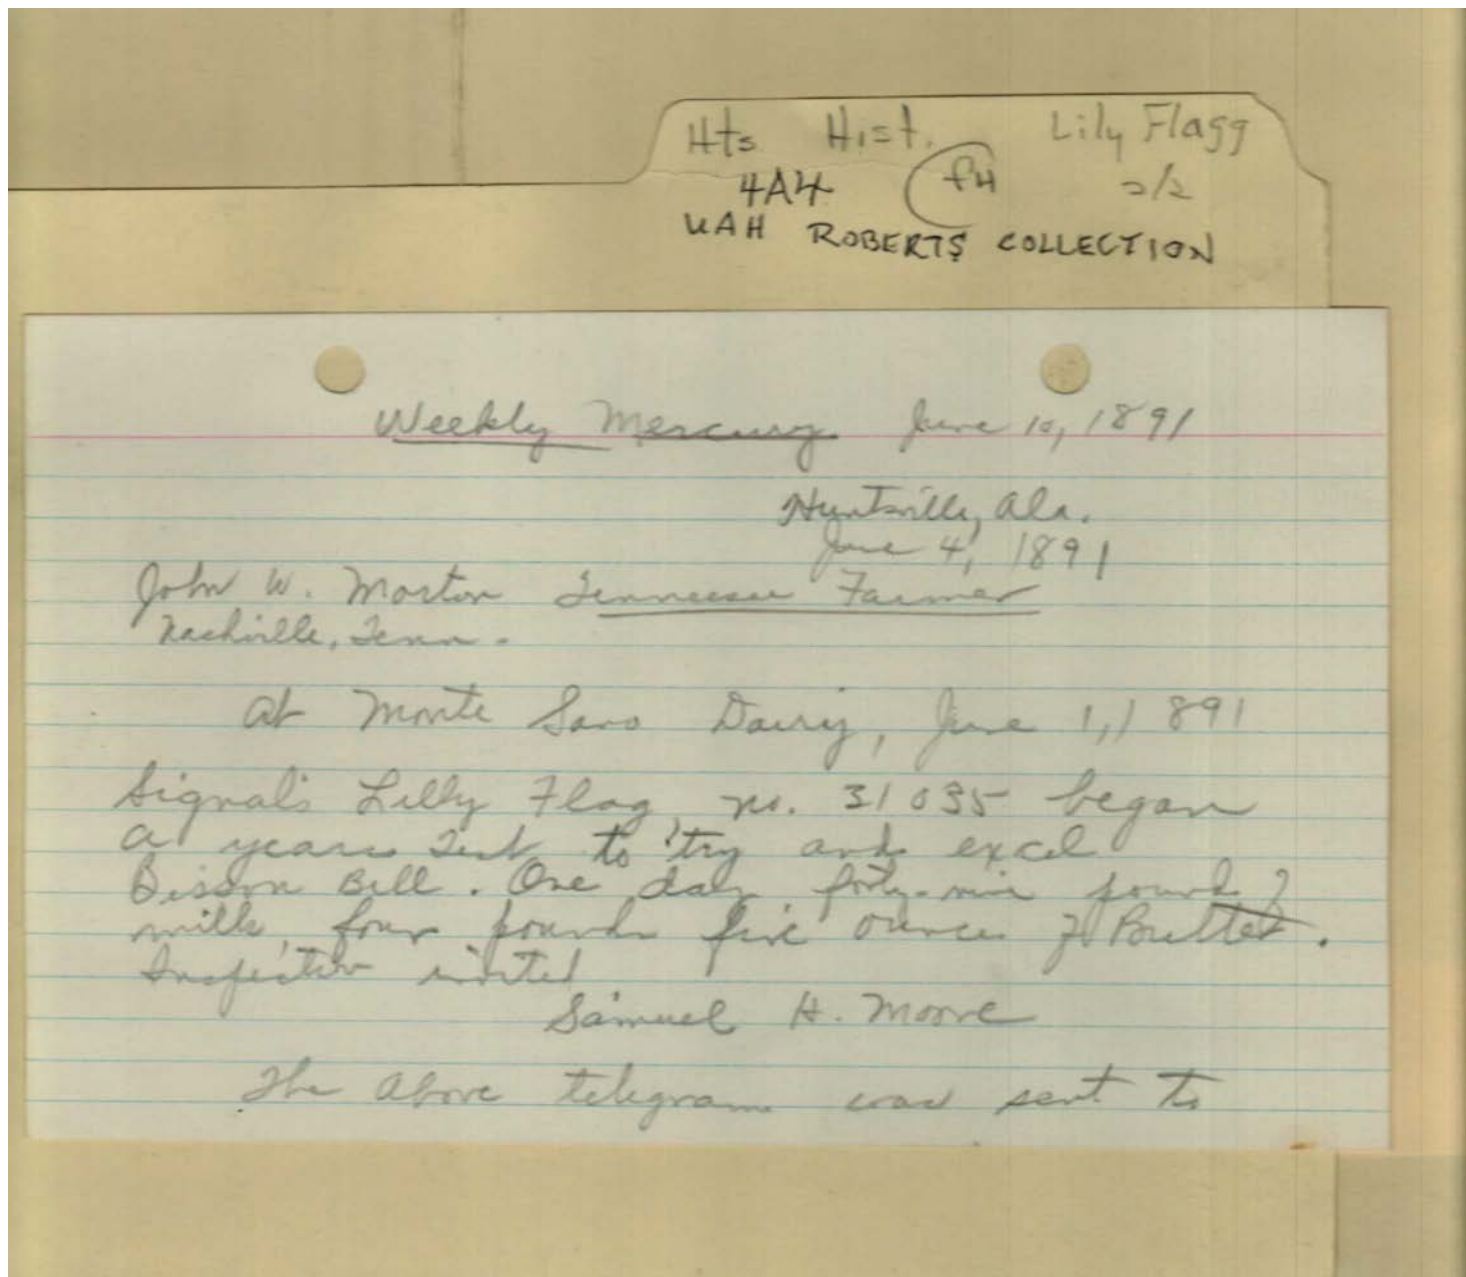 Hts Hist. Lily Flagg
4A4 fH 2/2
UAH ROBERTS COLLECTION
Weekly Mercury June 10, 1891
Huntsville, Ala.
June 4, 1891
John W. Morton Tennessee Farmer
Nashville, Tenn.
At Monte Sano Dairy, June 1, 1891
Signal's Lilly Flag, no. 31035 began
a years test to try and excel
Bisson Bell. One day forty-nine pounds of
milk, four pounds five ounces of Butter.
Inspection invited
Samuel H. Moore
The above telegram was sent to